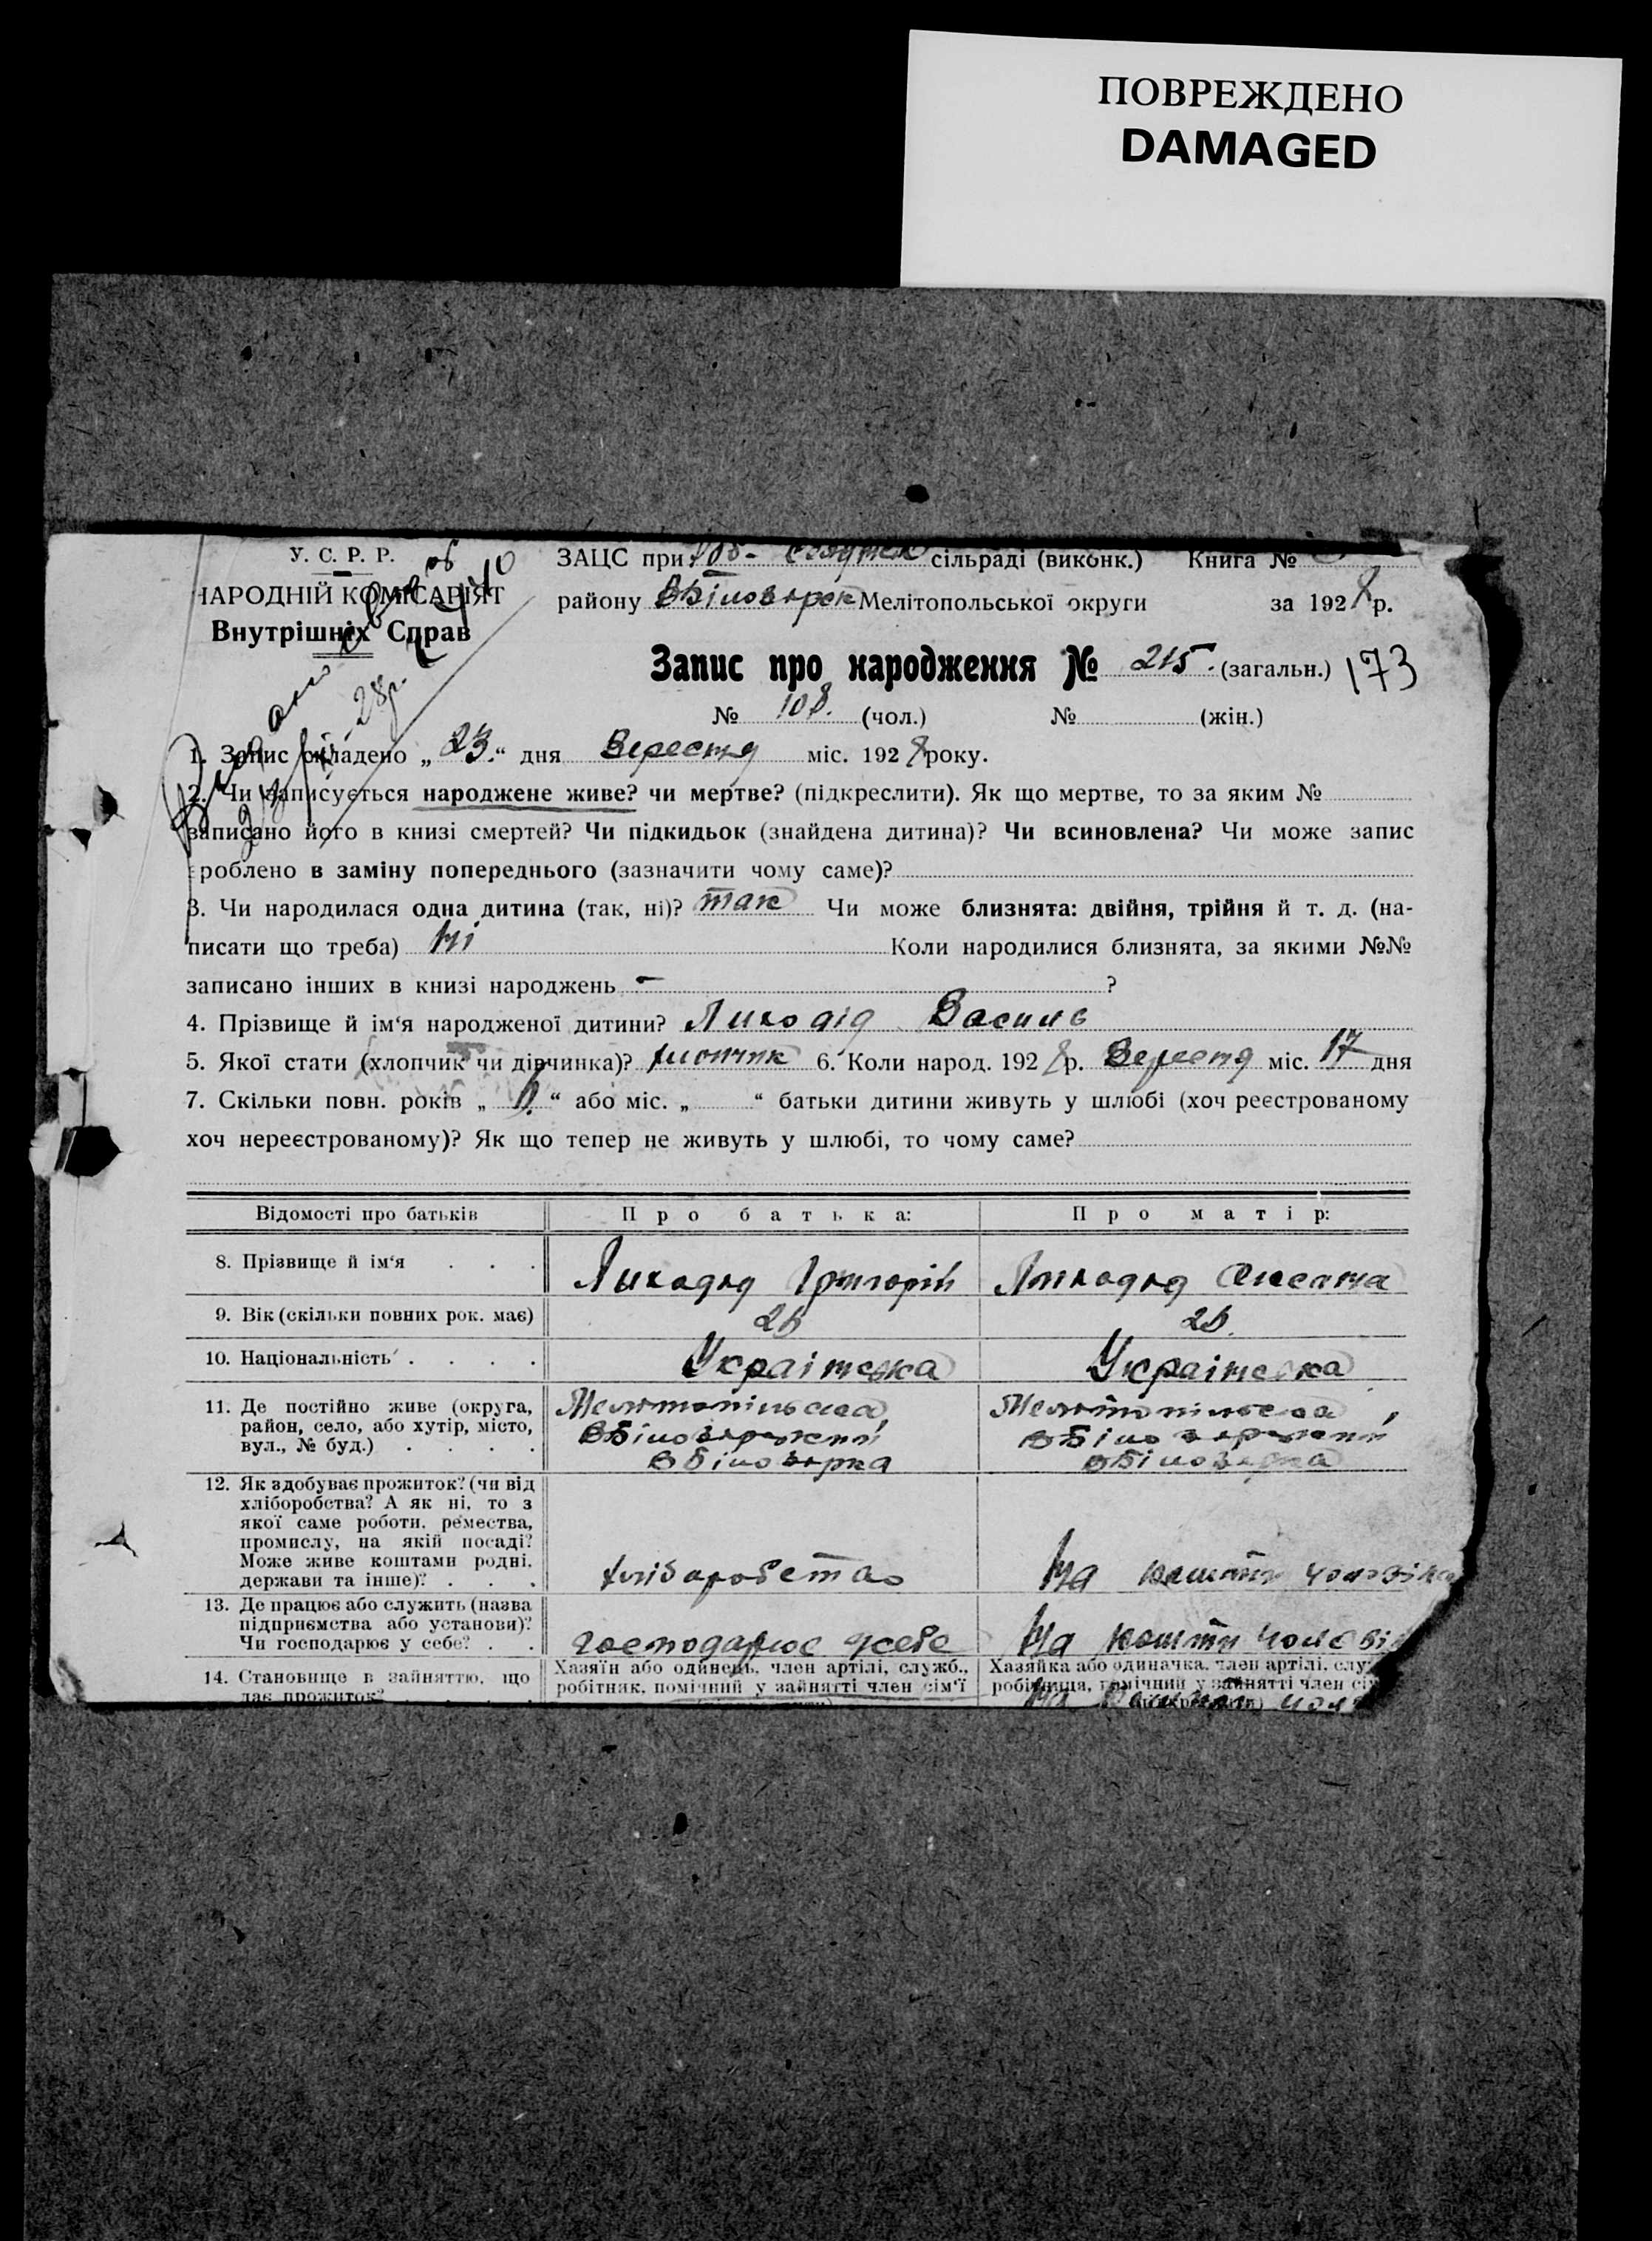 ПОВРЕЖДЕНО
DAMAGED
У. С. Р. Р.
НАРОДНІЙ КОМІСАРІЯТ
Внутрішніх Справ
ЗАЦС при сільраді (виконк.) Книга №
району ВБілозерск Мелітопольської округи за 1928 р.
Запис про народження № 215. (загальн.) 173
№ 108. (чол.) № (жін.)
28р.
1. Запис складено „ 23. “ дня Вересня міс. 1928 року.
2. Чи записується народжене живе? чи мертве? (підкреслити). Як що мертве, то за яким №
записано його в книзі смертей? Чи підкидьок (знайдена дитина)? Чи всиновлена? Чи може запис
зроблено в заміну попереднього (зазначити чому саме)?
3. Чи народилася одна дитина (так, ні)? так Чи може близнята: двійня, трійня й т. д. (на-
писати що треба) Ні Коли народилися близнята, за якими №№
записано інших в книзі народжень - ?
4. Прізвище й ім‘я народженої дитини? Лиходід Василь
5. Якої стати (хлопчик чи дівчинка)? хлопчик 6. Коли народ. 1928 р. Вересня міс. 17 дня
7. Скільки повн. років „ “ або міс. „ “ батьки дитини живуть у шлюбі (хоч реєстрованому
хоч нереєстрованому)? Як що тепер не живуть у шлюбі, то чому саме?
Відомості про батьків Про батька: Про матір:
8. Прізвище й ім‘я . . . Лиходід Григорій Лиходід
9. Вік (скільки повних рок. має)
10. Національність . . . . Українська Українська
11. Де постійно живе (округа, Мелітопільська, Мелітопільська,
район, село, або хутір, місто, ВБілозерський ВБілозерський
вул., № буд.) . . . . ВБілозерка ВБілозерка
12. Як здобуває прожиток? (чи від
хліборобства? А як ні, то з
якої саме роботи, ремества,
промислу, на якій посаді?
Може живе коштами родні,
держави та інше)? . . . хліборобства На кошти чоловіка
13. Де працює або служить (назва
підприємства або установи)?
Чи господарює у себе? . . господарює усебе На кошти чолові
14. Становище в зайняттю, що Хазяїн або одинець, член артілі, служб., Хазяйка або одиначка, член артілі, служ
дає прожиток? робітник, помічний у зайнятті член сім‘ї робітниця, помічний у зайнятті член сім
На кошти чол